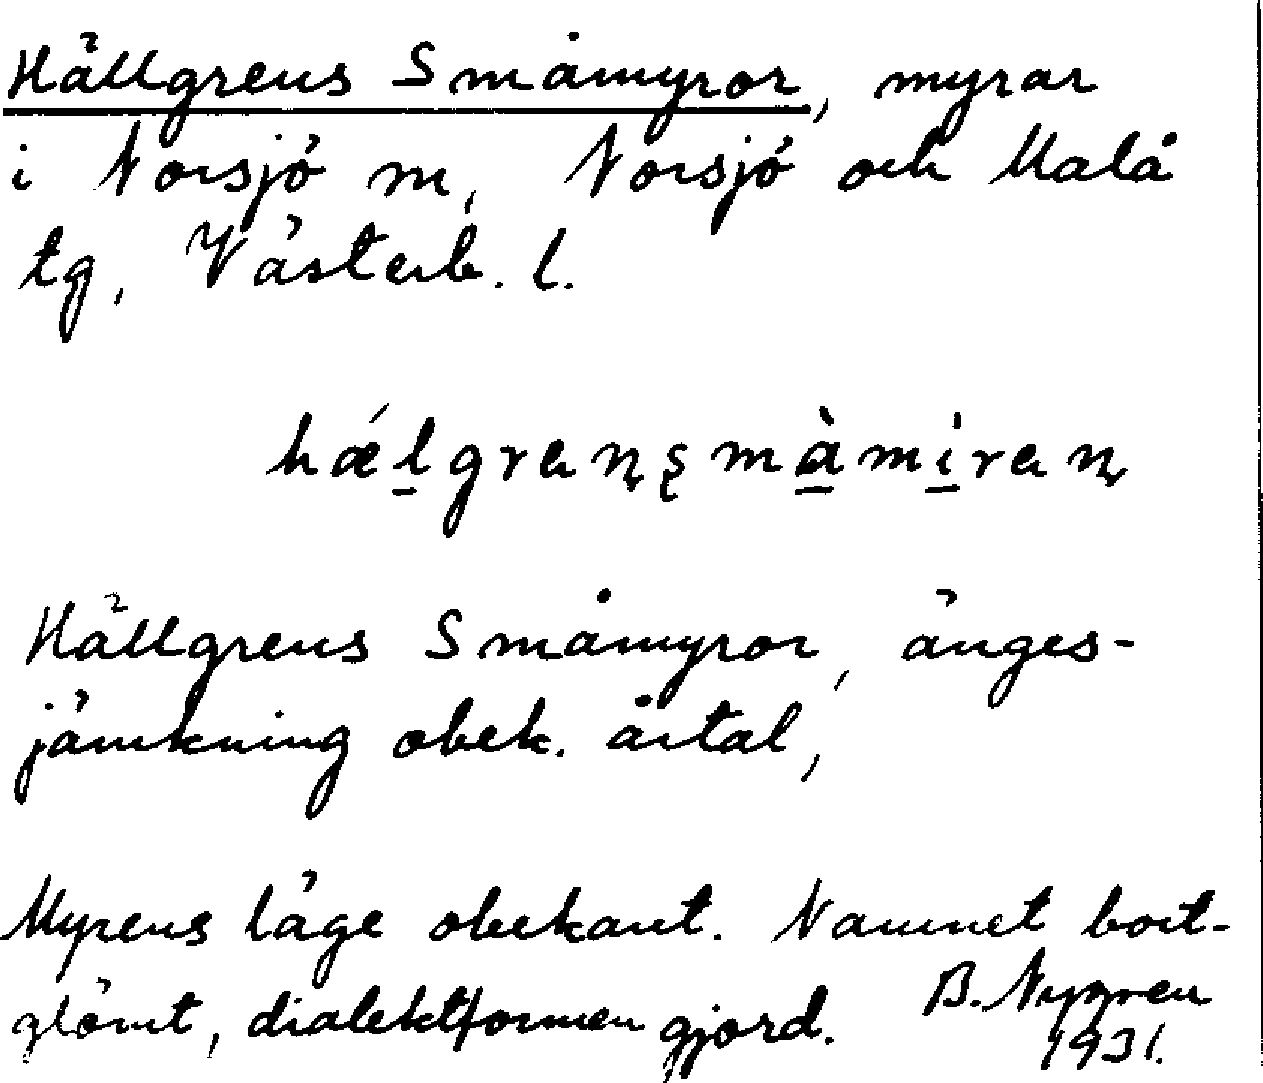 Hällgrens Småmyror, myrar
i Norsjö m, Norsjö och Malå
tg, Västerb. l.
hǽl̠grenşmà̠mí̠ren
Hällgrens Småmyror, änges-
jämkning obek. årtal,
Myrens läge obekant. Namnet bort-
glömt, dialektformen gjord. B. Nygren
1931.